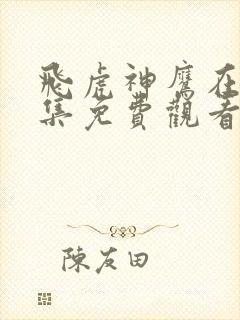 飛虎神鷹在
集免費觀看
陳友田